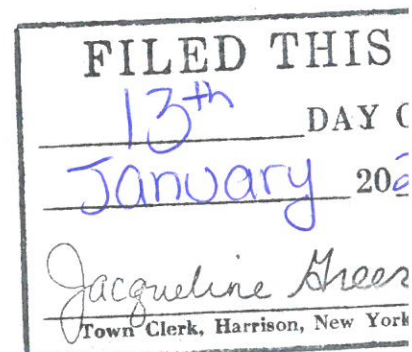 FILED THIS
13th DAY
January 20
Jacqueline
Town Clerk, Harrison, New York